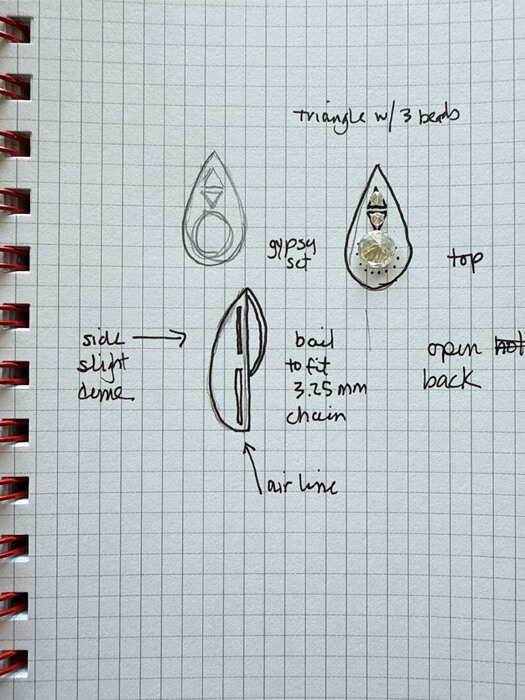 triangle w/ 3 beads
gypsy
set
top
side
slight
dome
bail
to fit
3.25 mm
chain
open
back
air line